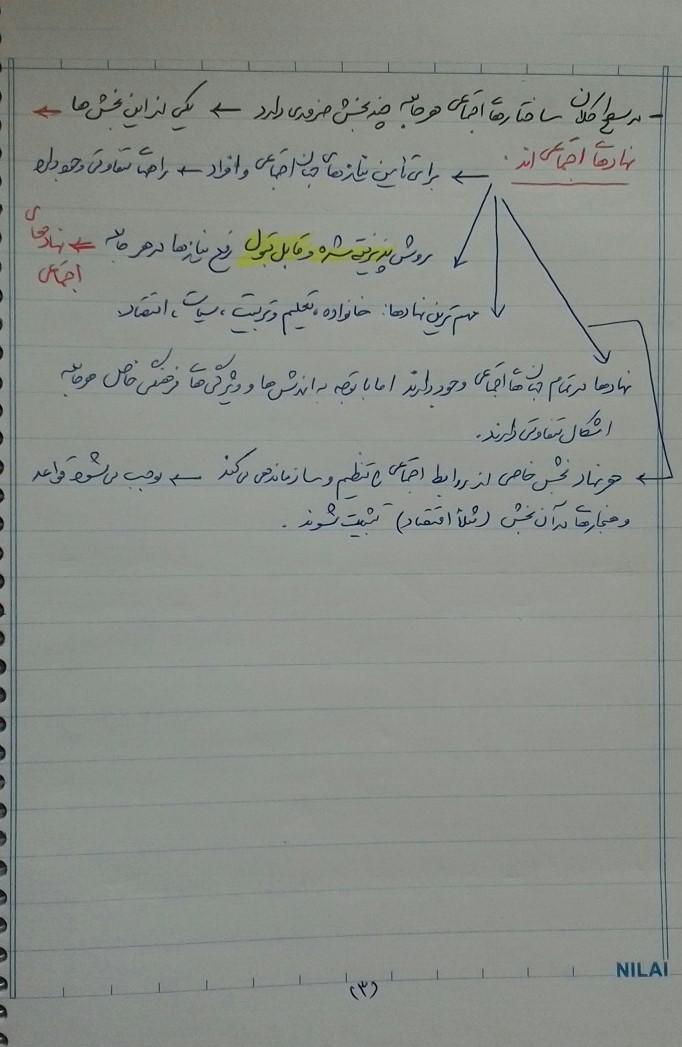 - در سطح کلان ساختارهای اجتماعی هر جامعه چند بخش ضروری دارد ← یکی از این بخش ها ←
نهادهای اجتماعی اند. ← برای تأمین نیازهای جهان اجتماعی و افراد ← راههای متفاوتی وجود دارد
روش پذیرفته شده و قابل قبول رفع نیازها در هر جامعه ← نهادهای اجتماعی
مهم ترین نهادها: خانواده، تعلیم و تربیت، سیاست، اقتصاد.
نهادها در تمام جهان های اجتماعی وجود دارند اما با توجه به ارزش ها و ویژگی های فرهنگی خاص هر جامعه
اشکال متفاوتی دارند.
← هر نهاد بخش خاصی از روابط اجتماعی را تنظیم و سازماندهی می کند ← موجب می شود قواعد
و هنجارها در آن بخش (مثلاً اقتصاد) تثبیت شوند.
NILAI
(۳)